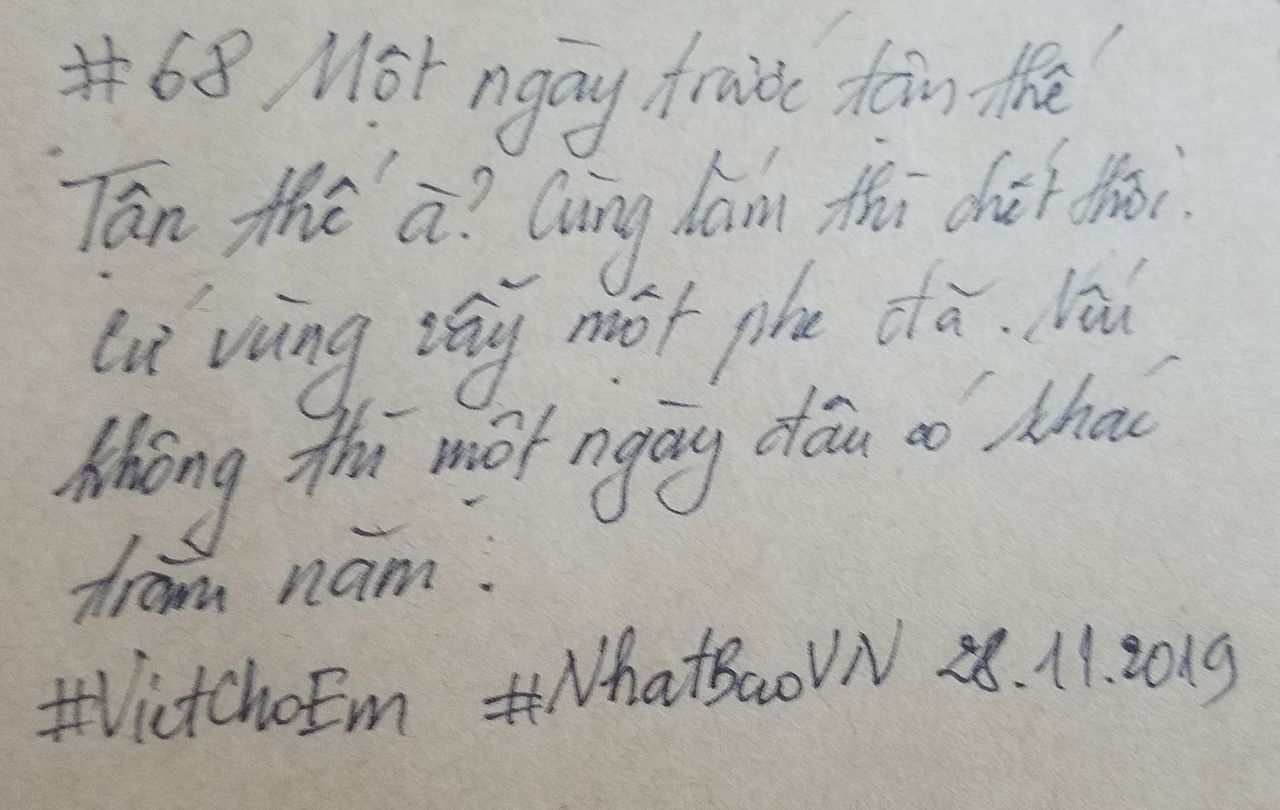 #68 Một ngày trước tận thế
Tận thế à? Cùng lắm thì chết thôi.
Cứ vùng vẫy một phe đã. Nếu
không thì một ngày đâu có khác
trăm năm.
#VietChoEm #NhatBaoVN 28.11.2019